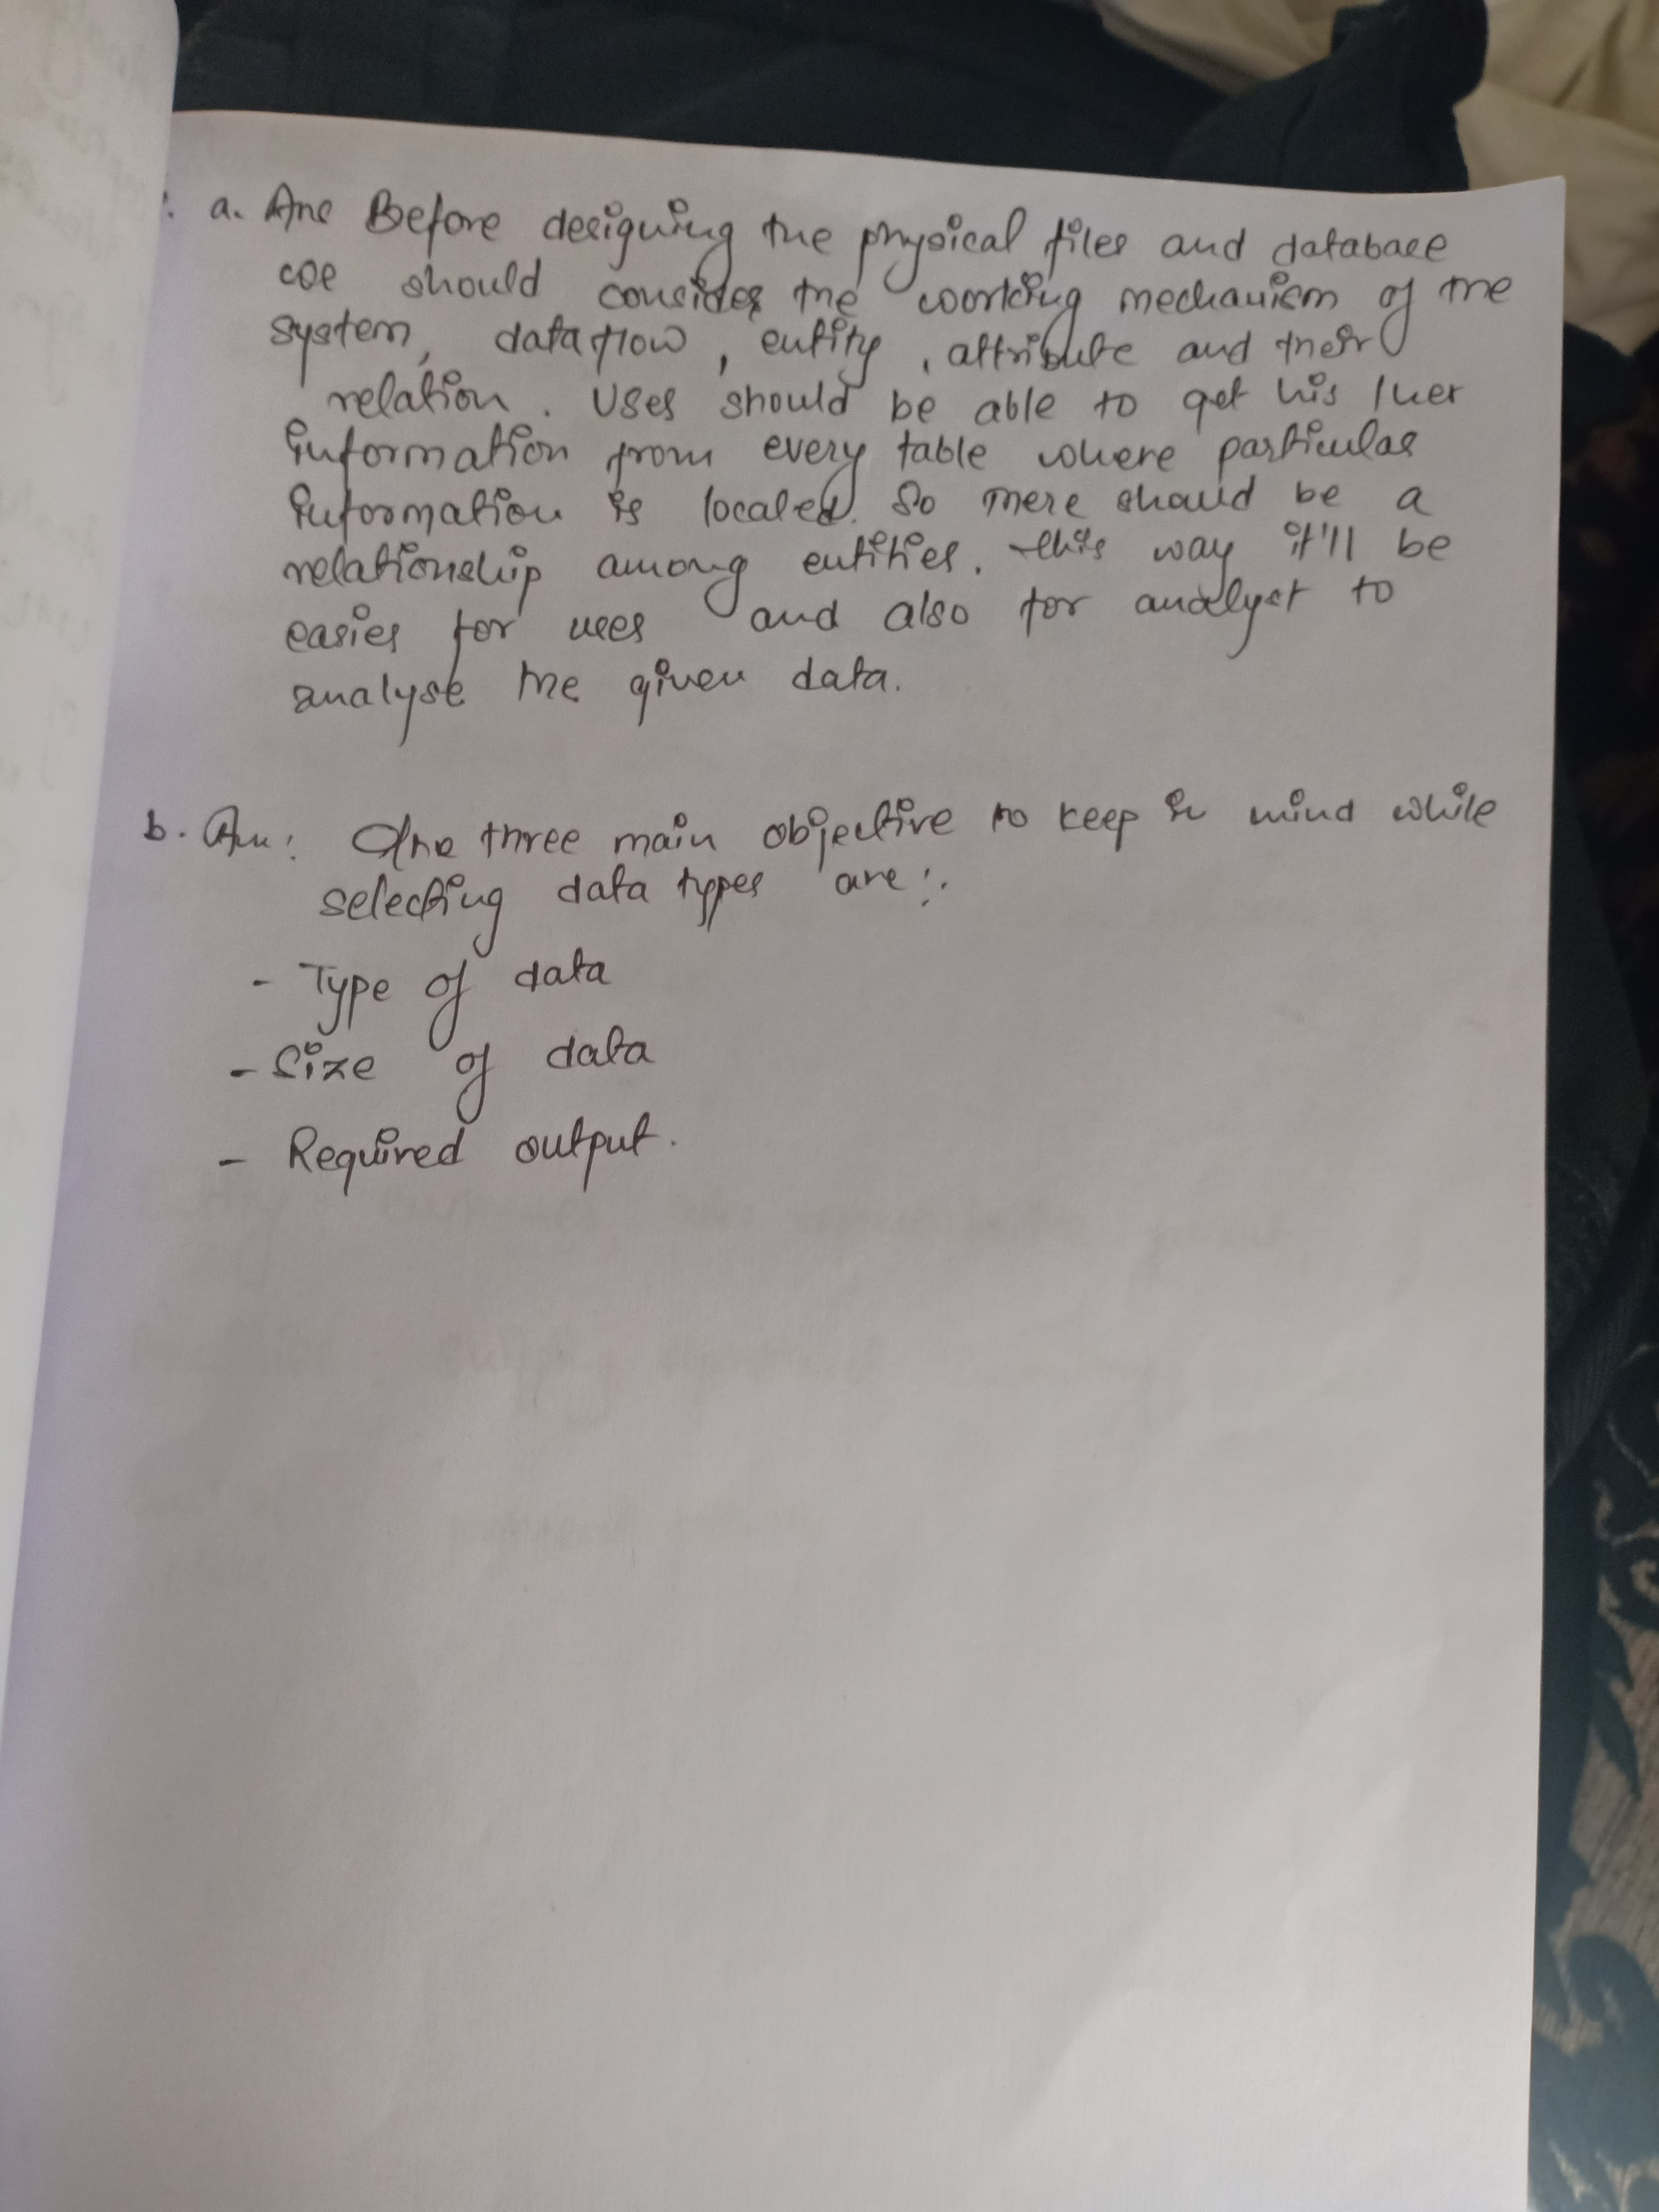 a. Ans Before designing the physical files and database
we should consider the working mechanism of the
system, dataflow, entity, attribute and their
relation. User should be able to get his/her
information from every table where particular
information is located. So there should be a
relationship among entities. this way it'll be
easier for user and also for analyst to
analyse the given data.
b. Ans: The three main objective to keep in mind while
selecting data types are:.
- Type of data
- Size of data
- Required output.